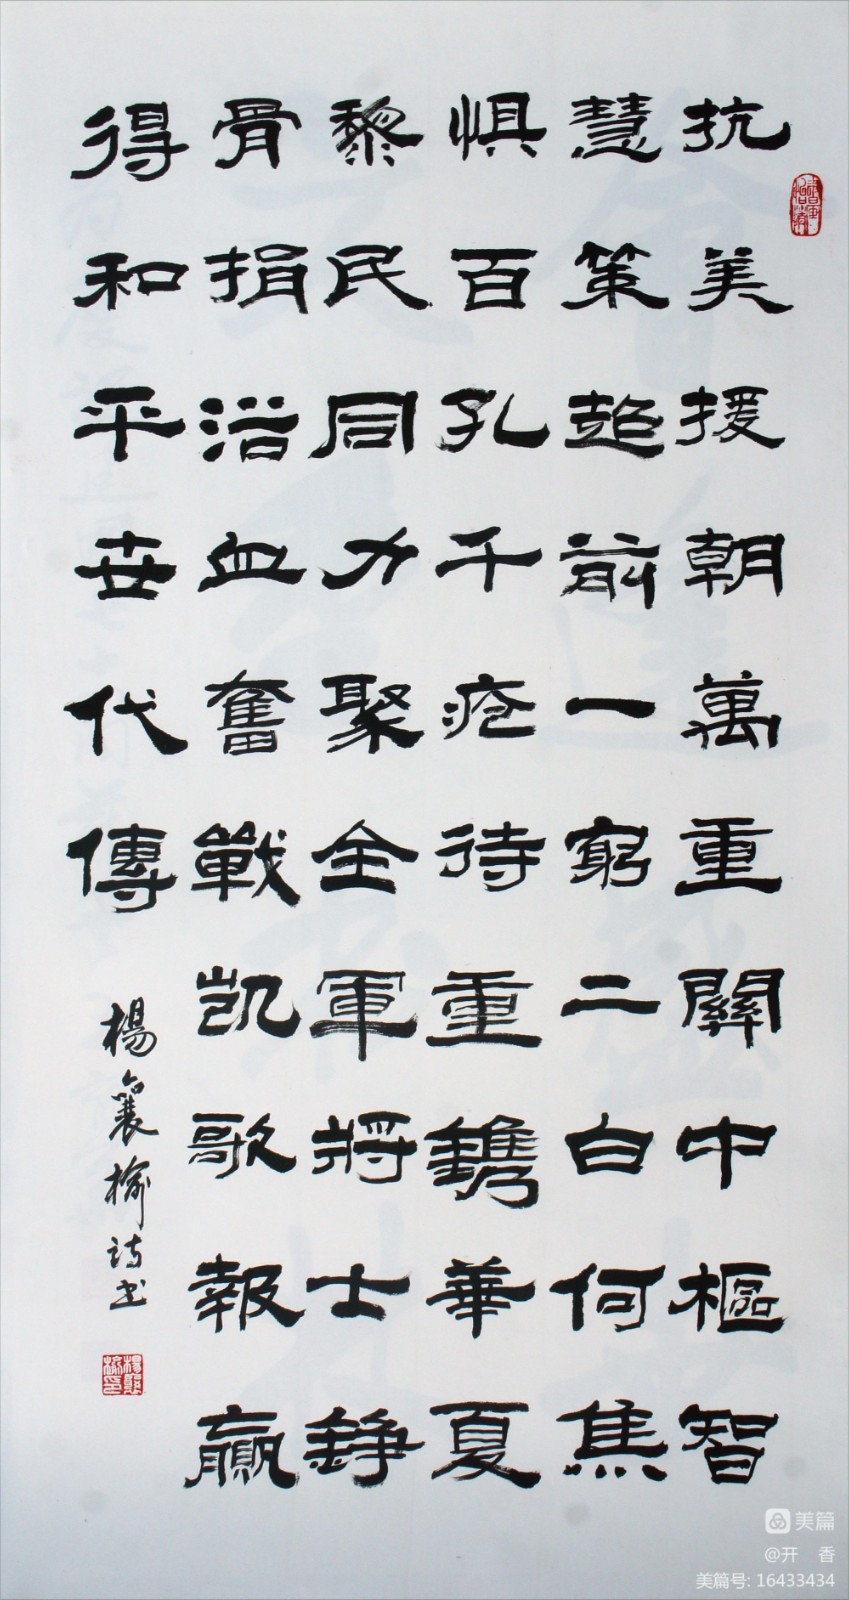 抗美援朝萬重關中樞智
慧策超前一窮二白何焦
惧百孔千疮待重鐫華夏
黎民同力聚全軍將士錚
骨捐浴血奮戰凱歌報贏
得和平世代傳
楊襄榆诗书
美篇
@开 香
美篇号: 16433434